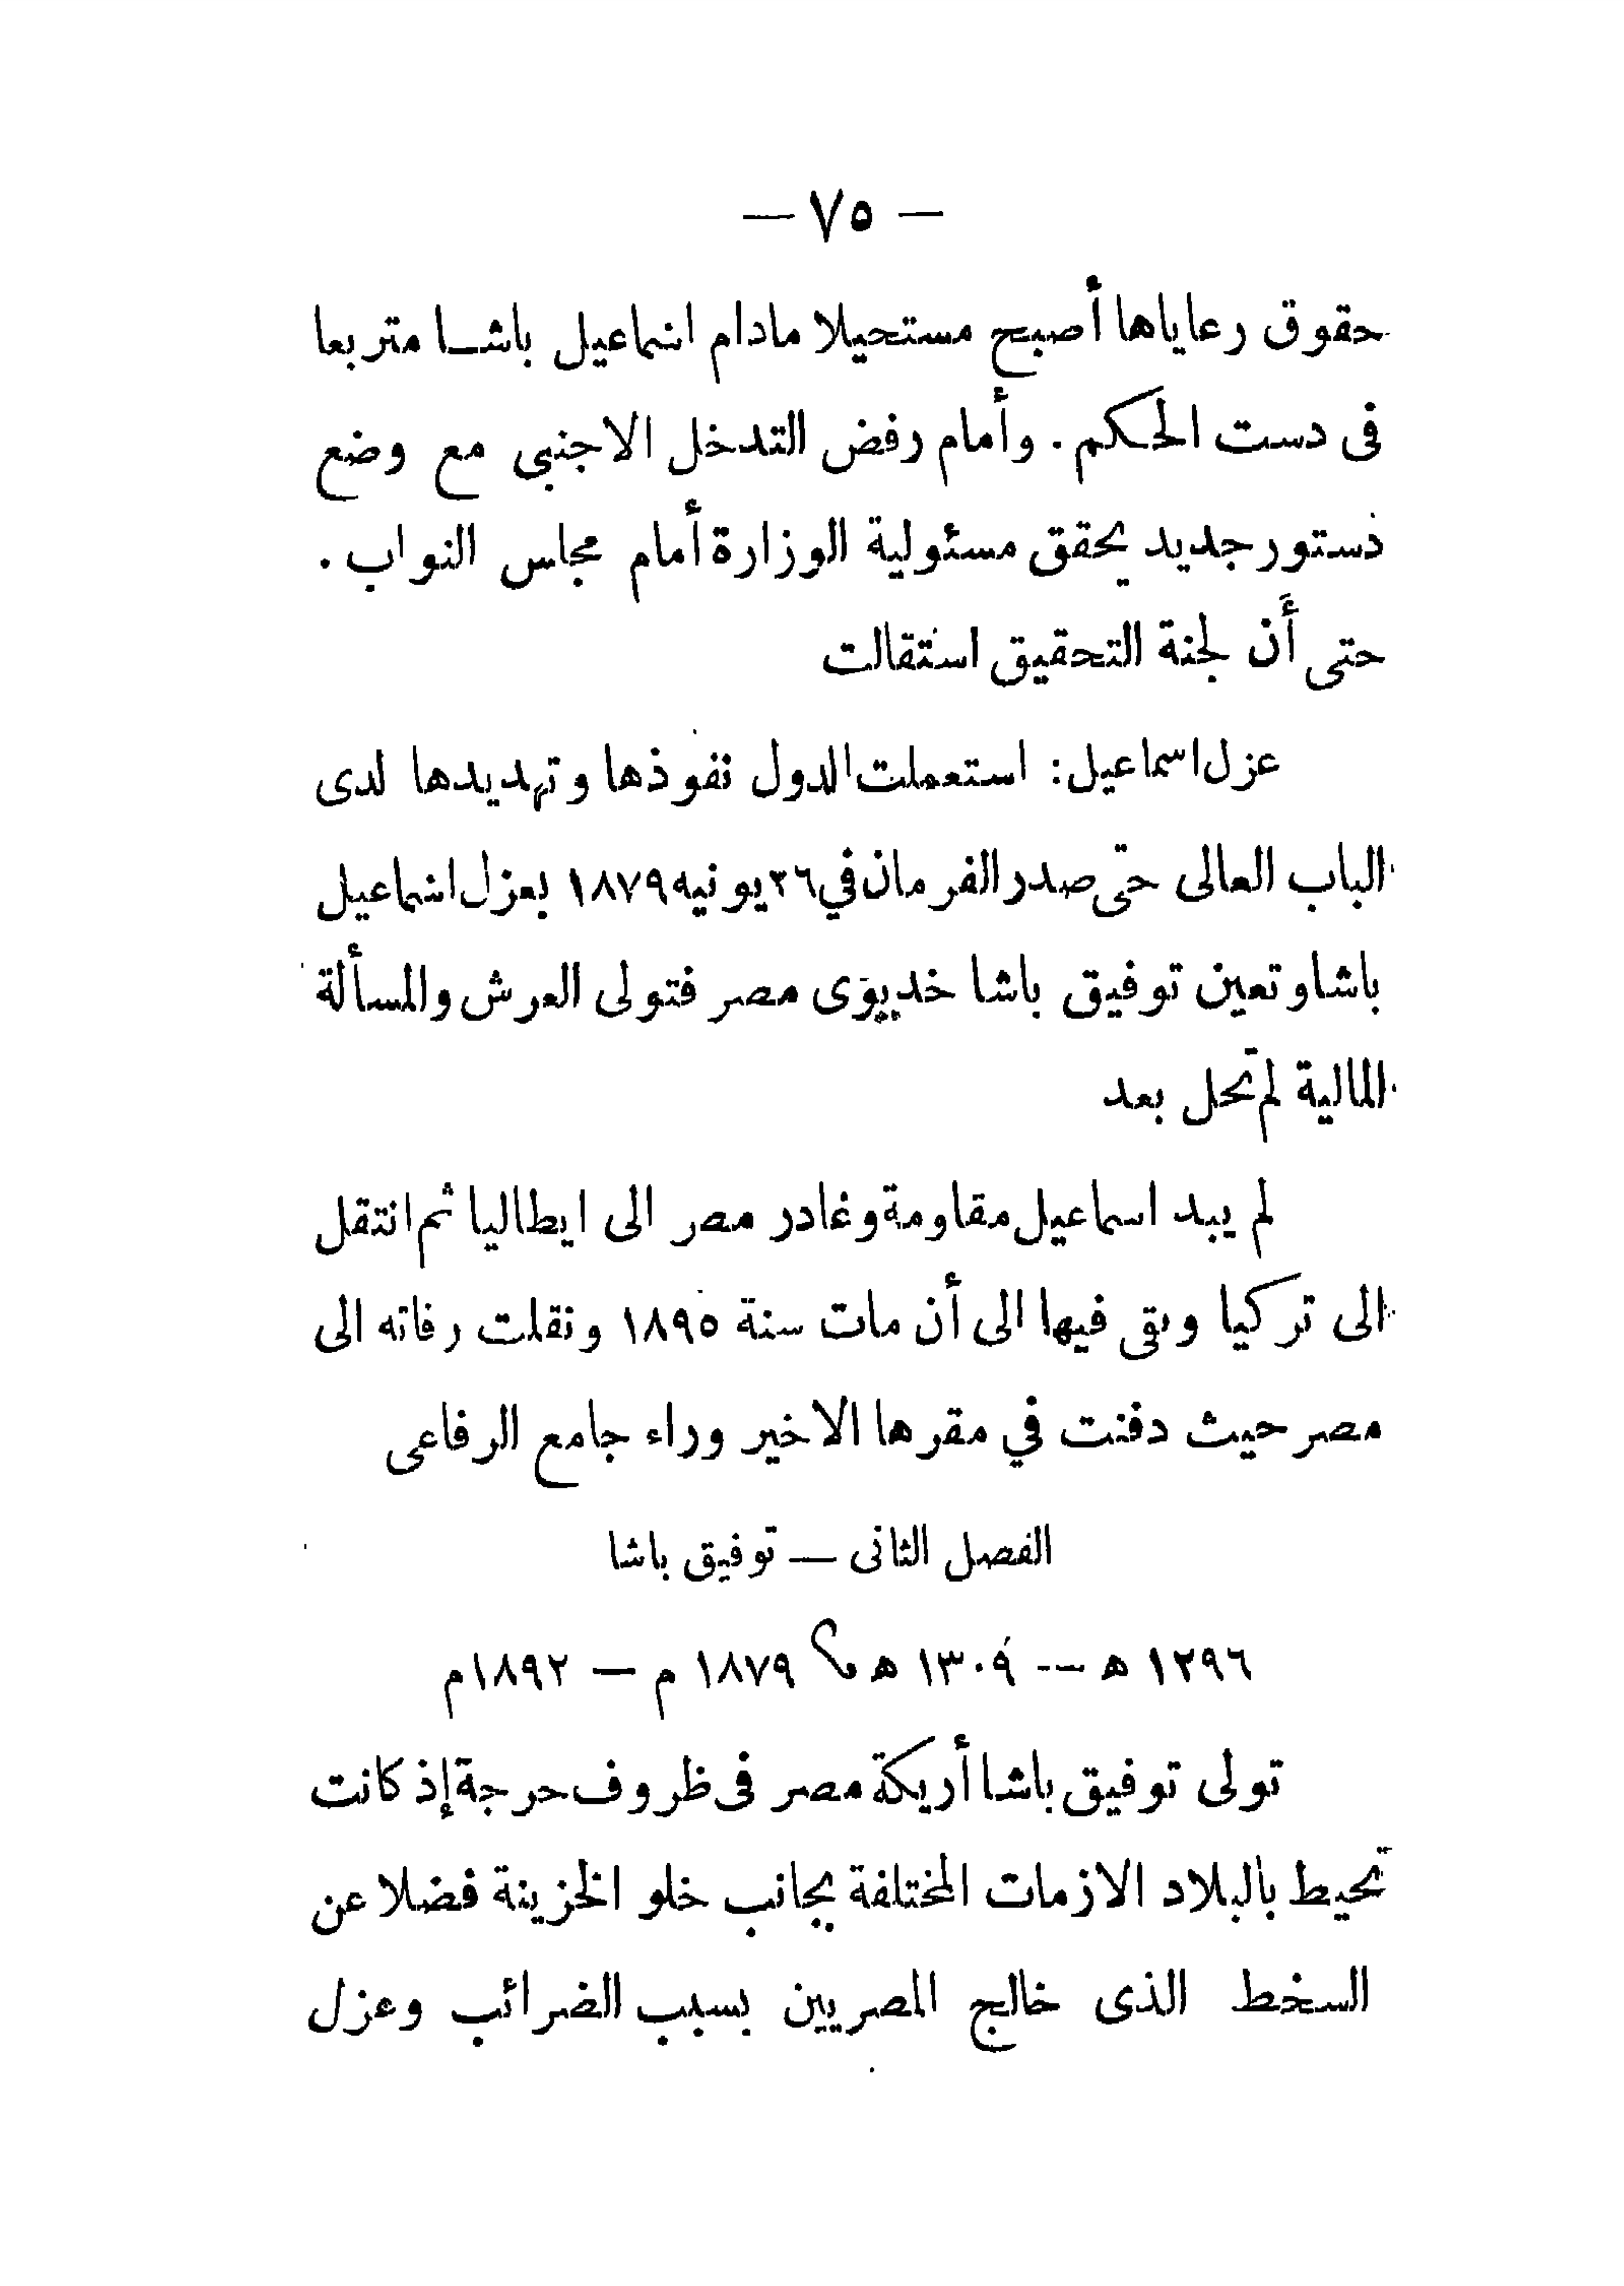 — ٧٥ —
حقوق رعاياها أصبح مستحيلا مادام اسماعيل باشا متربعا
فى دست الحكم . وأمام رفض التدخل الاجنبى مع وضع
دستور جديد يحقق مسئولية الوزارة أمام مجلس النواب .
حتى أن لجنة التحقيق استقالت
عزل اسماعيل : استعملت الدول نفوذها وتهديدها لدى
الباب العالى حتى صدر الفرمان في ٢٦ يونيه ١٨٧٩ بعزل اسماعيل
باشا وتعين توفيق باشا خديوى مصر فتولى العرش والمسألة
المالية لم تحل بعد
لم يبد اسماعيل مقاومة وغادر مصر الى ايطاليا ثم انتقل
الى تركيا وبقى فيها الى أن مات سنة ١٨٩٥ ونقلت رفاته الى
مصر حيث دفنت في مقرها الاخير وراء جامع الرفاعى
الفصل الثانى — توفيق باشا
١٢٩٦ ه — ١٣٠٩ ه ١٨٧٩ م — ١٨٩٢ م
تولى توفيق باشا أريكة مصر فى ظروف حرجة إذ كانت
تحيط بالبلاد الازمات المختلفة بجانب خلو الخزينة فضلا عن
السخط الذى خالج المصريين بسبب الضرائب وعزل